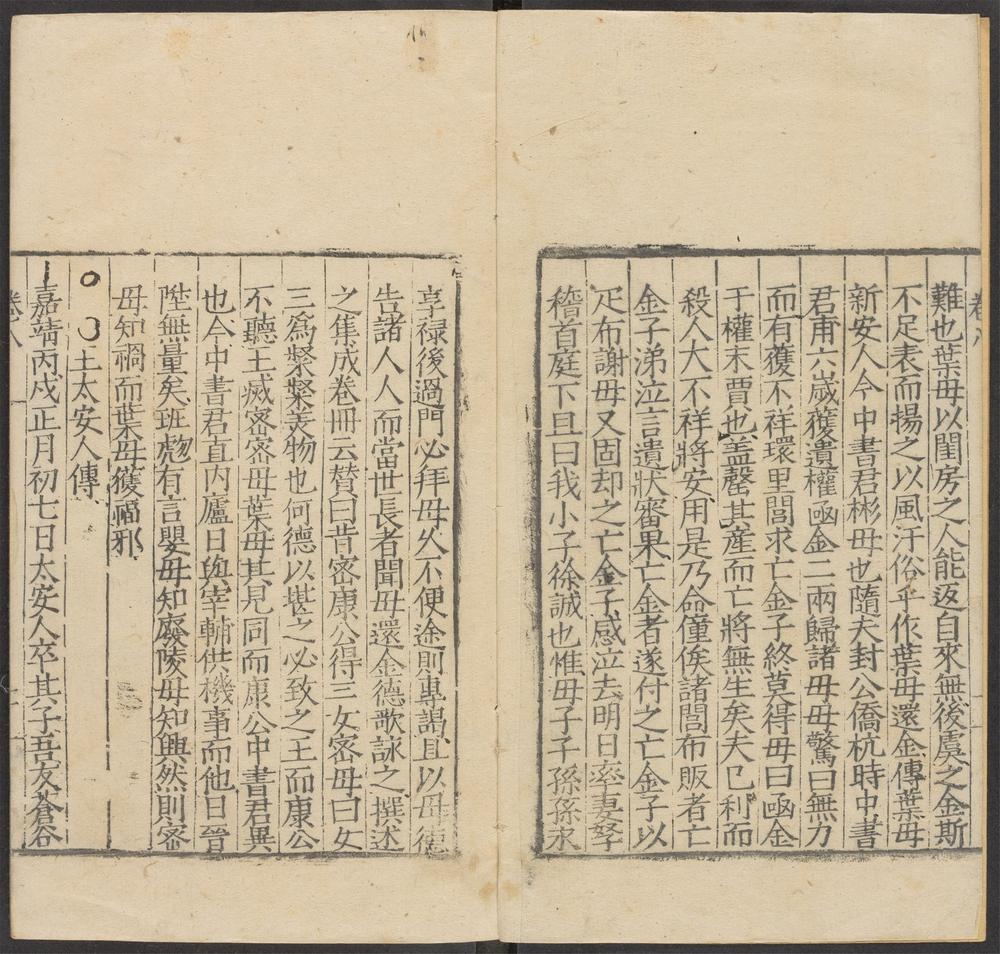 難也葉母以閨房之人能返自來無後虞之金斯
不足表而揚之以風汗俗乎作葉母還金傳葉母
新安人今中書君彬母也隨夫封公僑杭時中書
君甫六歲獲遺權𠄶金二兩歸諸母母驚曰無力
而有獲不祥環里閭求亡金子終莫得母曰𠄶金
于權末賈也盖罄其産而亡將無生矣夫已利而
殺人大不祥將安用是乃命僮俟諸閭布販者亡
金子涕泣言遺狀審果亡金者遂付之亡金子以
疋布謝母又固却之亡金子感泣去明日率妻孥
稽首庭下且曰我小子徐誠也惟母子子孫孫求
享禄後過門必拜母久不便途則專謁且以母德
告諸人人而當世長者聞母還金德歌詠之撰述
之集成卷冊云賛曰昔密康公得三女密母曰女
三爲粲粲美物也何德以堪之必致之王而康公
不聽王滅密密母葉母其見同而康公中書君異
也今中書君直内廬日與宰輔供機事而他日晉
陞無量矣班彪有言嬰母知廢陵母知興然則密
母知禍而葉母獲福邪
土太安人傳
嘉靖丙戍正月初七日太安人卒其子吾友蒼谷
卷八